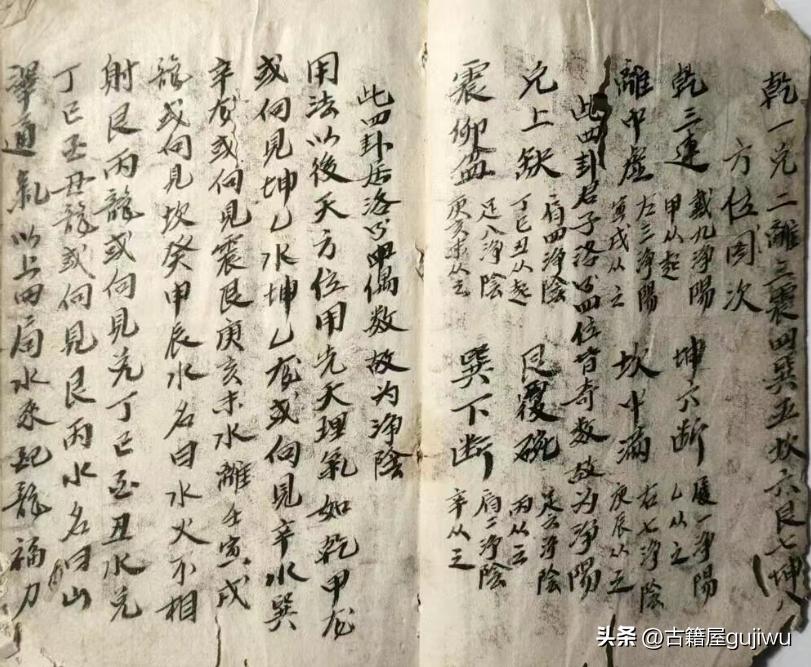 乾一兌二離三震四巽五坎六艮七坤八
方位图次
乾三連 戴九净陽 甲从起 坤六断 履一净陽 乙从之
離中虚 左三净陽 寅戌从之 坎中滿 右七净陰 庚辰从之
此四卦君子洛四位皆奇数故为净陽
兌上缺 肩四净陰 丁巳丑从起 艮覆碗 足六净陰 丙从
震仰盆 足八净陰 庚亥未从之 巽下断 肩二净陰 辛从之
此四卦居洛偶数故为净陰
用法以後天方位用先天理氣如乾甲龙
或向見坤乙水坤乙龙或向見辛水巽
辛龙或向見震艮庚亥未水離壬寅戌
龍或向見坎癸甲辰水名曰水火不相
射艮丙龍或向見兌丁巳丑水兌
丁巳丑龍或向見艮丙水名曰山
澤通氣以上四局水來配龍福力
头条 @古籍屋gujiwu